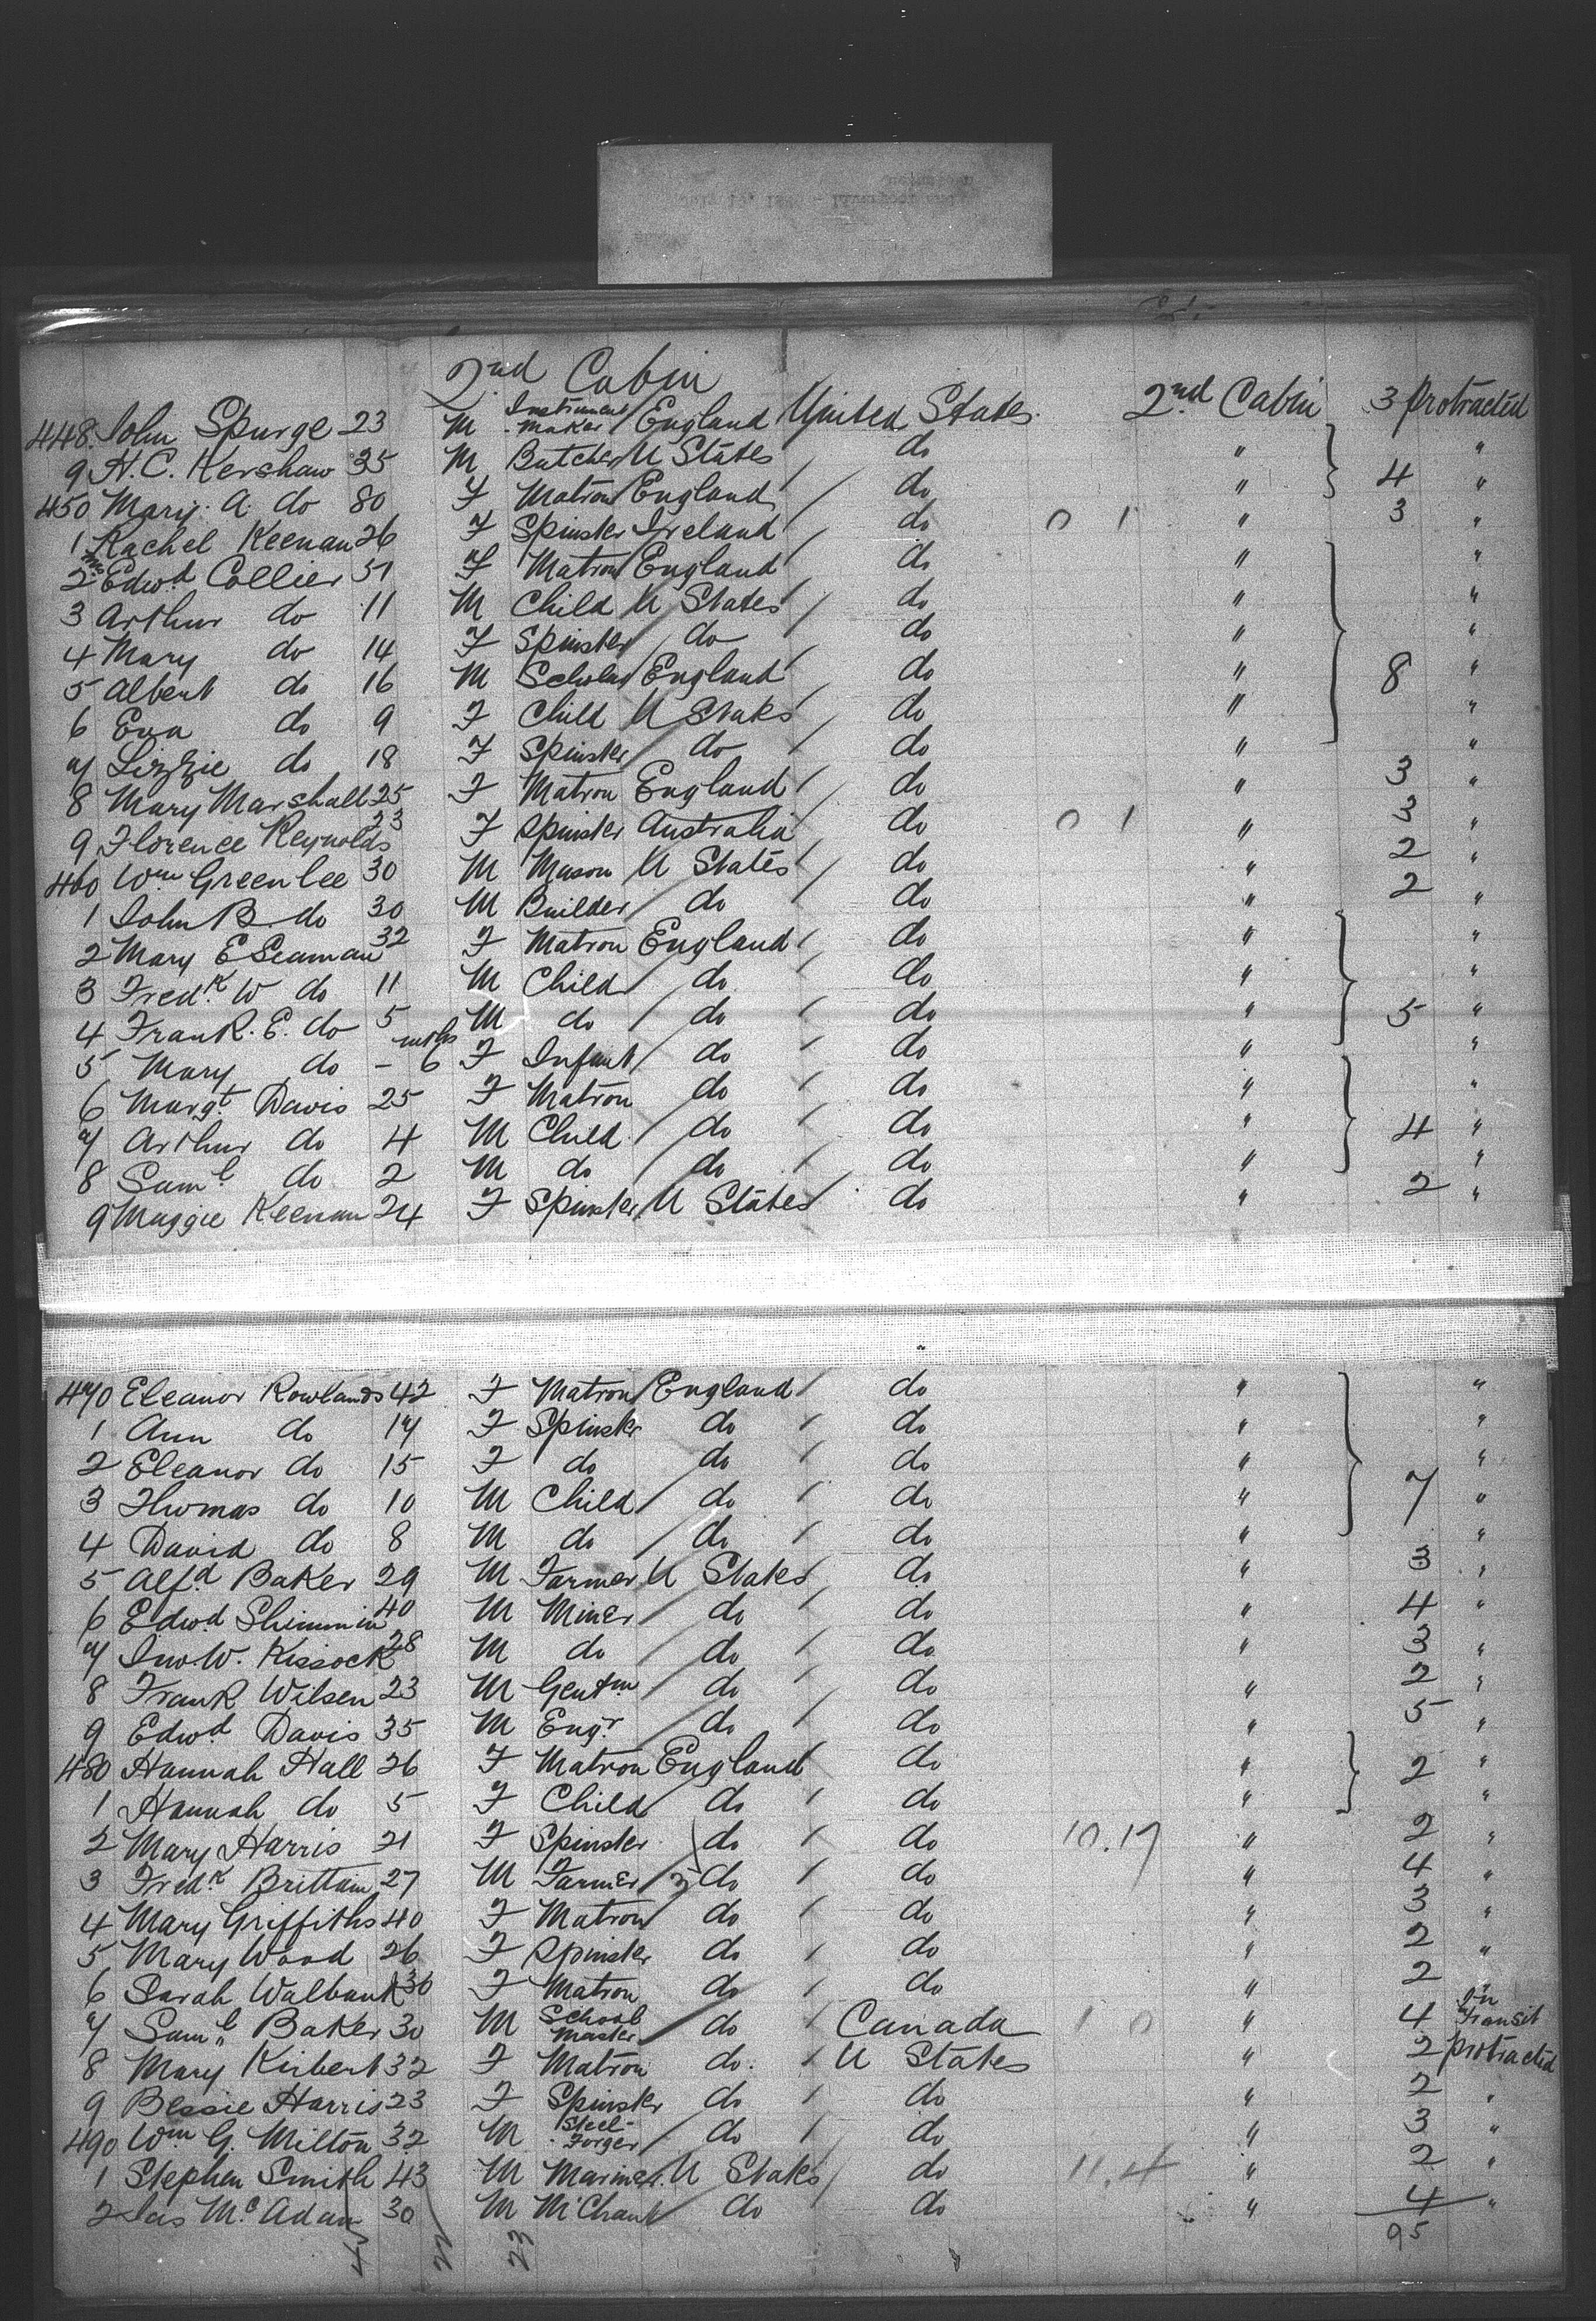 2nd Cabin
448 John Spurge 23 M Instrument maker England United States 2nd Cabin 3 protracted
9 H. C. Kershaw 35 M Butcher U States do " "
450 Mary A. do 80 F Matron England do " 4 "
1 Rachel Keenan 26 F Spinster Ireland do 0 1 " 3 "
2 Mrs Edwd Collier 51 F Matron England do " "
3 Arthur do 11 M Child U States do " "
4 Mary do 14 F Spinster do do " "
5 Albert do 16 M Scholar England do " 8 "
6 Eva do 9 F Child U States do " "
7 Lizzie do 18 F Spinster do do " "
8 Mary Marshall 25 F Matron England do " 3 "
9 Florence Reynolds 23 F Spinster Australia do 0 1 " 3 "
460 Wm Greenlee 30 M Mason U States do " 2 "
1 John B. do 30 M Builder do do " 2 "
2 Mary E Seaman 32 F Matron England do " "
3 Fredk W do 11 M Child do do " "
4 Frank. E. do 5 M do do do " 5 "
5 Mary do - 6 mths F Infant do do " "
6 Margt Davis 25 F Matron do do " "
7 Arthur do 4 M Child do do " 4 "
8 Saml do 2 M do do do " "
9 Maggie Keenan 24 F Spinster U States do " 2 "
470 Eleanor Rowlands 42 F Matron England do " "
1 Ann do 17 F Spinster do do " "
2 Eleanor do 15 F do do do " "
3 Thomas do 10 M Child do do " 7 "
4 David do 8 M do do do " "
5 Alfd Baker 29 M Farmer U States do " 3 "
6 Edwd Shimmin 40 M Miner do do " 4 "
7 Jno. W. Kissock 28 M do do do " 3 "
8 Frank Wilsen 23 M Gentm do do " 2 "
9 Edwd Davis 35 M Engr do do " 5 "
480 Hannah Hall 26 F Matron England do " 2 "
1 Hannah do 5 F Child do do " "
2 Mary Harris 21 F Spinster do do 10.17 " 2 "
3 Fredk Brittam 27 M Farmer do do " 4 "
4 Mary Griffiths 40 F Matron do do " 3 "
5 Mary Wood 26 F Spinster do do " 2 "
6 Sarah Walbank 30 F Matron do do " 2 "
7 Saml Baker 30 M School Master do Canada 1 0 " 4 In Transit
8 Mary Kirbert 32 F Matron do. U States " 2 protracted
9 Bessie Harris 23 F Spinster do do " 2 "
490 Wm G. Milton 32 M Steel-Forger do do " 3 "
1 Stephen Smith 43 M Mariner U States do 11.4 " 2 "
2 Jas McAdam 30 M MChant do do " 4 "
22 23 95